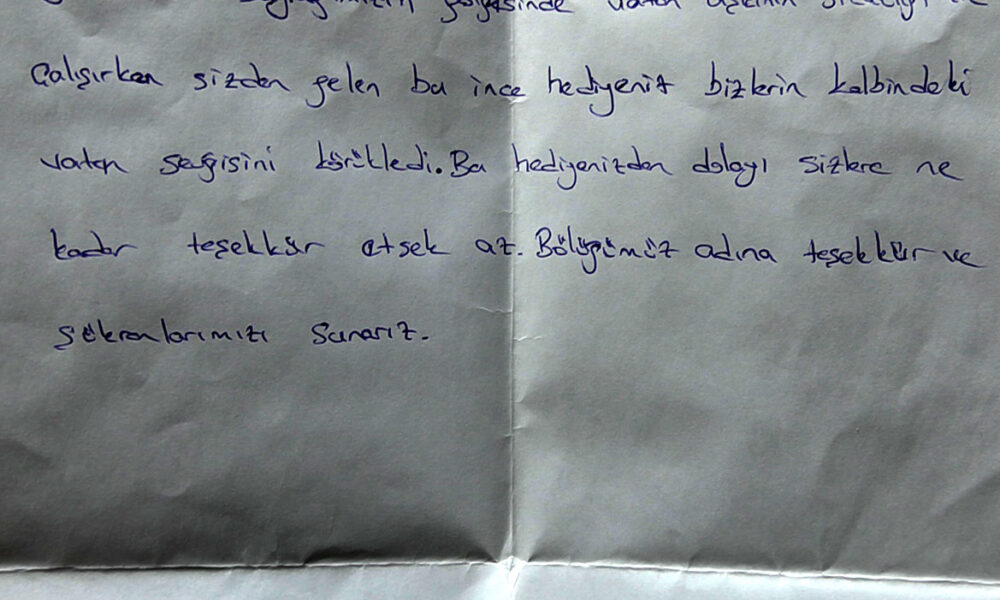 gölgesinde vatan aşkının
Çalışırken sizden gelen bu ince hediyeniz bizlerin kalbindeki
vatan sevgisini körükledi. Bu hediyenizden dolayı sizlere ne
kadar teşekkür etsek az. Bölüğümüz adına teşekkür ve
şükranlarımızı sunarız.